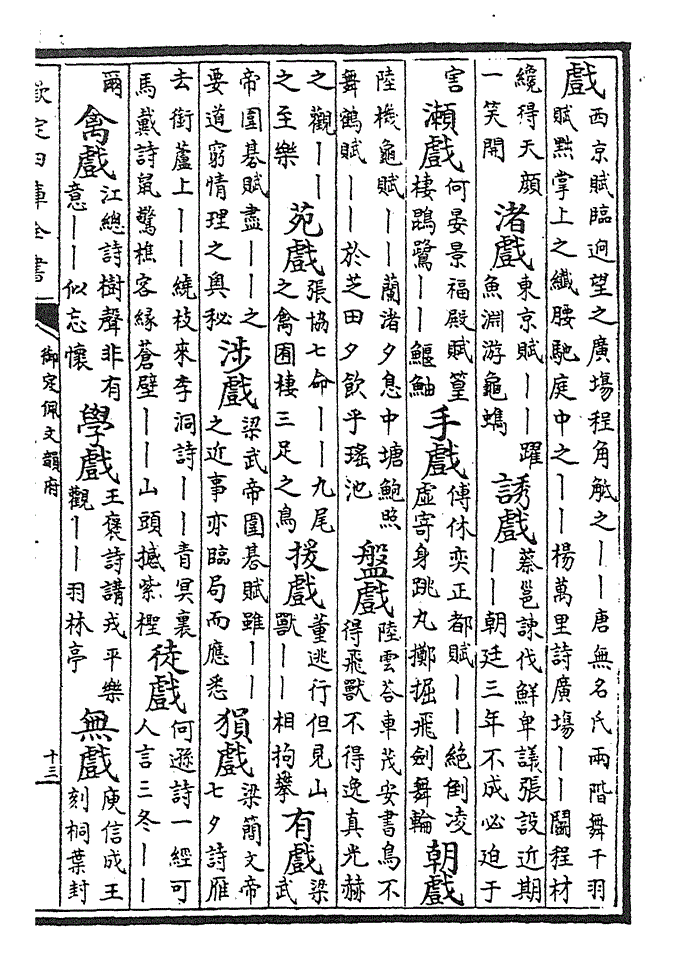 戲西京賦臨迥望之廣塲程角觝之丨丨唐無名氏兩階舞干羽
賦㸃掌上之纖腰馳庭中之丨丨楊萬里詩廣塲丨丨鬭程材
纔得天顔
一笑開
渚戲東京賦丨丨躍
魚淵游龜蠵
誘戲蔡邕諫伐鮮卑議張設近期
丨丨朝廷三年不成必迫于
害
瀬戲何晏景福殿賦篁
棲鵾鷺丨丨鰋鮋
手戲傅休奕正都賦丨丨絶倒凌
虛寄身跳丸擲掘飛劍舞輪
朝戲
陸機龜賦丨丨蘭渚夕息中塘鮑照
舞鶴賦丨丨於芝田夕飲乎瑤池
盤戲陸雲荅車茂安書鳥不
得飛獸不得逸真光赫
之觀丨丨
之至樂
苑戲張協七命丨丨九尾
之禽囿棲三足之鳥
援戲董逃行但見山
獸丨丨相拘攀
有戲梁
武
帝圍棊賦盡丨丨之
要道窮情理之奥秘
涉戲梁武帝圍棊賦雖丨丨
之近事亦臨局而應悉
戲梁簡文帝
七夕詩雁
去銜蘆上丨丨繞枝來李洞詩丨丨青冥裏
馬戴詩鼠驚樵客緣蒼壁丨丨山頭撼紫檉
徒戲何遜詩一經可
人言三冬丨丨
爾
禽戲江總詩樹聲非有
意丨丨似忘懷
學戲王褒詩講戎平樂
觀丨丨羽林亭
無戲庾信成王
刻桐葉封
欽定四庫全書
御定佩文韻府
十三